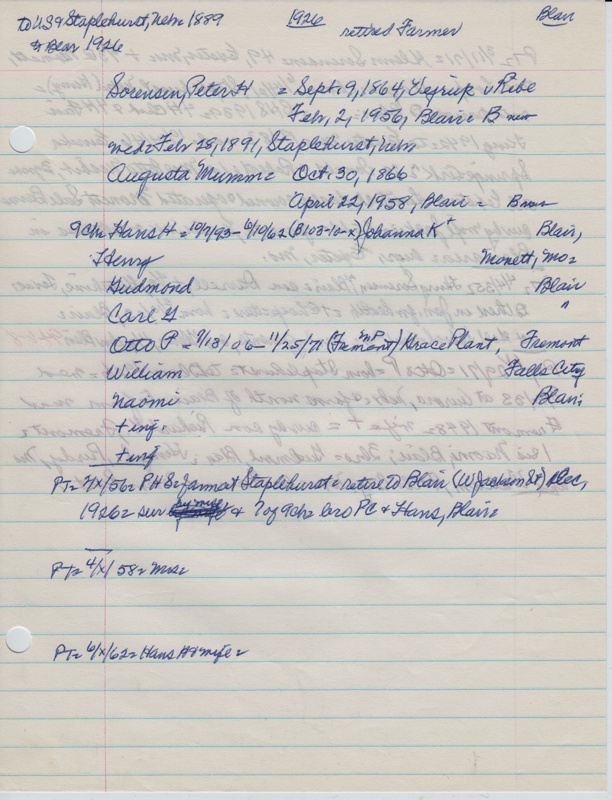 to US & Staplehurst, Nebr 1889
& Blair 1926
1926
retired Farmer
Blair
Sorensen, Peter H = Sept. 9, 1864, Vejrup v Ribe
Feb, 2, 1956, Blair = B
med = Feb 25, 1891, Staplehurst, Nebr
Augusta Mumm = Oct. 30, 1866
April 22, 1958, Blair =
9 Ch = Hans H = 10/7/93 - 6/10/62 (B103-10-X) Johanna K + Blair,
Henry Monett, Mo =
Gudmond Blair
Carl G "
Otto P = 9/18/06 - 11/25/71 (Fremont) Grace Plant, Fremont
William Falls City
Naomi Blair;
+ inf.
+ inf
PT = 2/X/56 = PHS = farm at Staplehurst = retire to Blair (W Jackson St) Dec,
1926 = sur by wife & 7 of 9 ch = bro PC & Hans, Blair =
PT = 4/X/58 = Mrs =
PT = 6/X/62 = Hans H & wife =